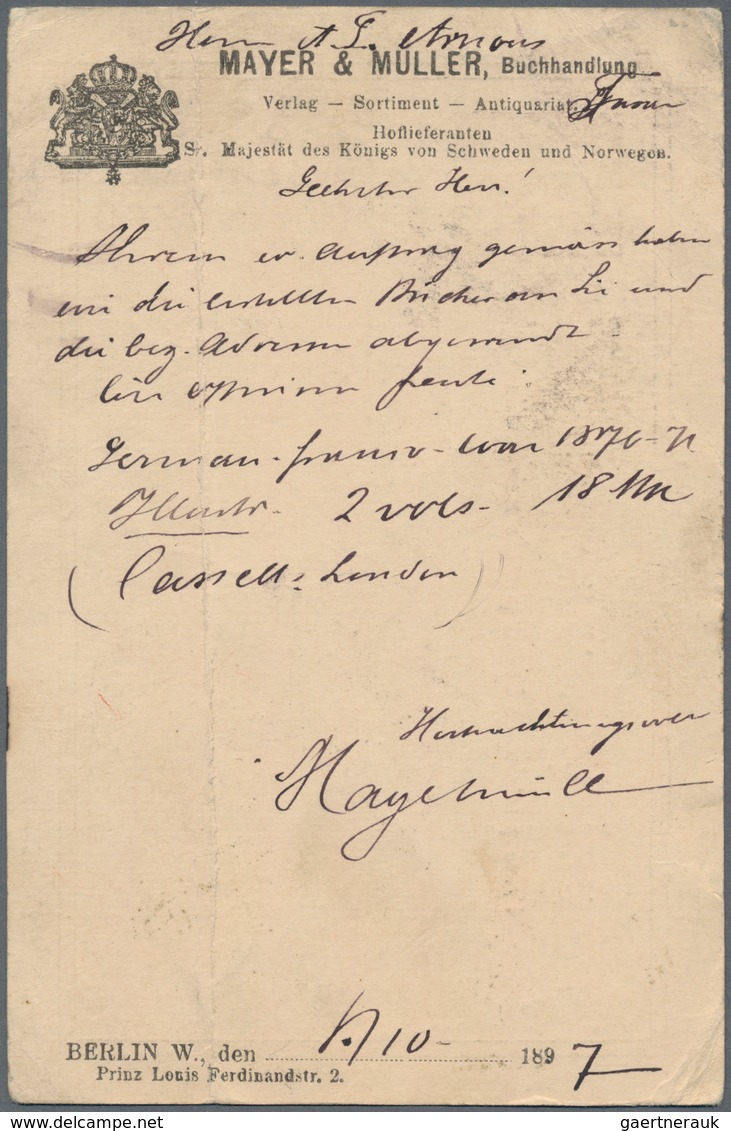 Herrn A. L.
MAYER & MÜLLER, Buchhandlung
Verlag — Sortiment — Antiquariat.
Hoflieferanten
Sr. Majestät des Königs von Schweden und Norwegen.
Geehrter Herr!
Ihrem w. Auftrag gemäss haben
wir die bestellten Bücher an Sie und
die bez. Adressen abgesandt
heute:
German-franco-war 1870-71
Illustr. 2 vols. 18 Mk
(Cassell, London)
Hochachtungsvoll
Mayer & Müller
BERLIN W., den 10 1897
Prinz Louis Ferdinandstr. 2.
gaertnerauk